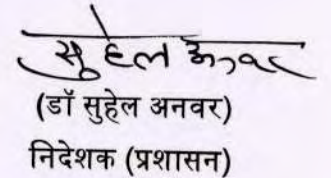 सुहेल अनवर
(डॉ सुहेल अनवर)
निदेशक (प्रशासन)